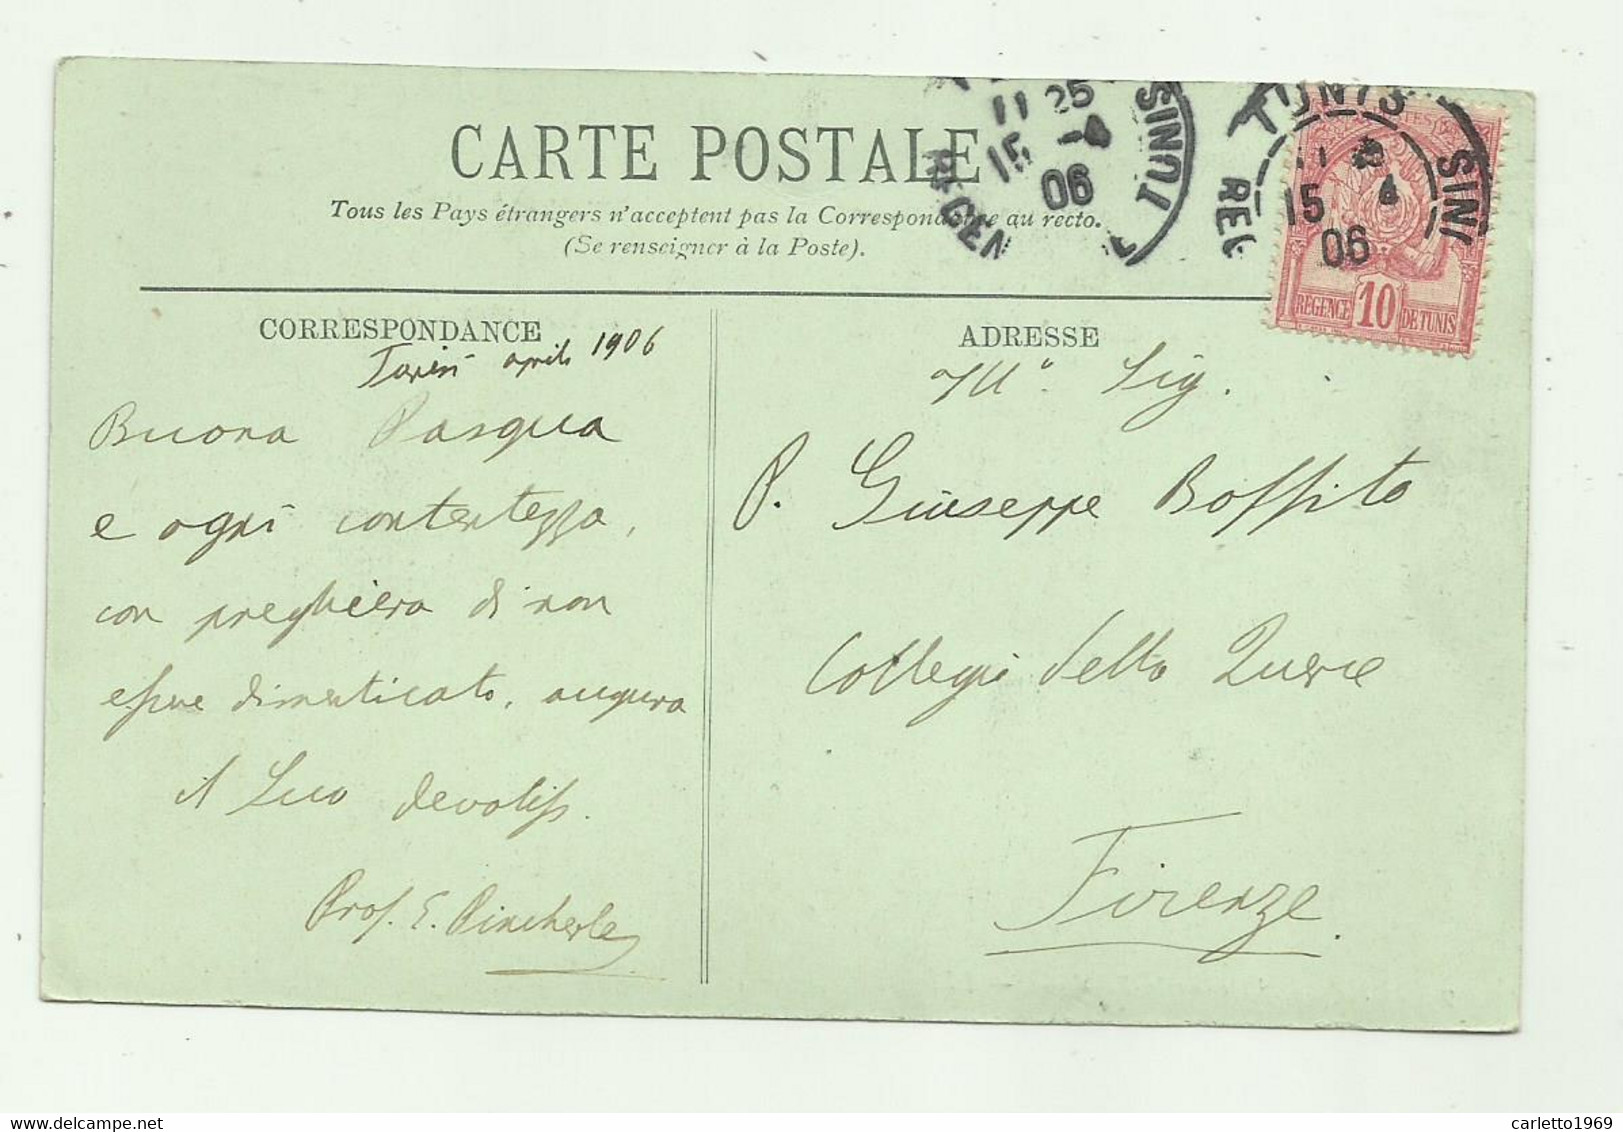 CARTE POSTALE
Tous les Pays étrangers n'acceptent pas la Correspondance au recto.
(Se renseigner à la Poste).
11 25
15 -4
06
TUNIS
15 4
06
REGENCE 10 DE TUNIS
CORRESPONDANCE
Tunisi aprile 1906
Buona Pasqua
e ogni contentezza,
con preghiera di non
essere dimenticato, augura
il Suo devotiss.
Prof. E. Pincherle
ADRESSE
Ill.o Sig.
P. Giuseppe Boffito
Collegio della Querce
Firenze.
carletto1969